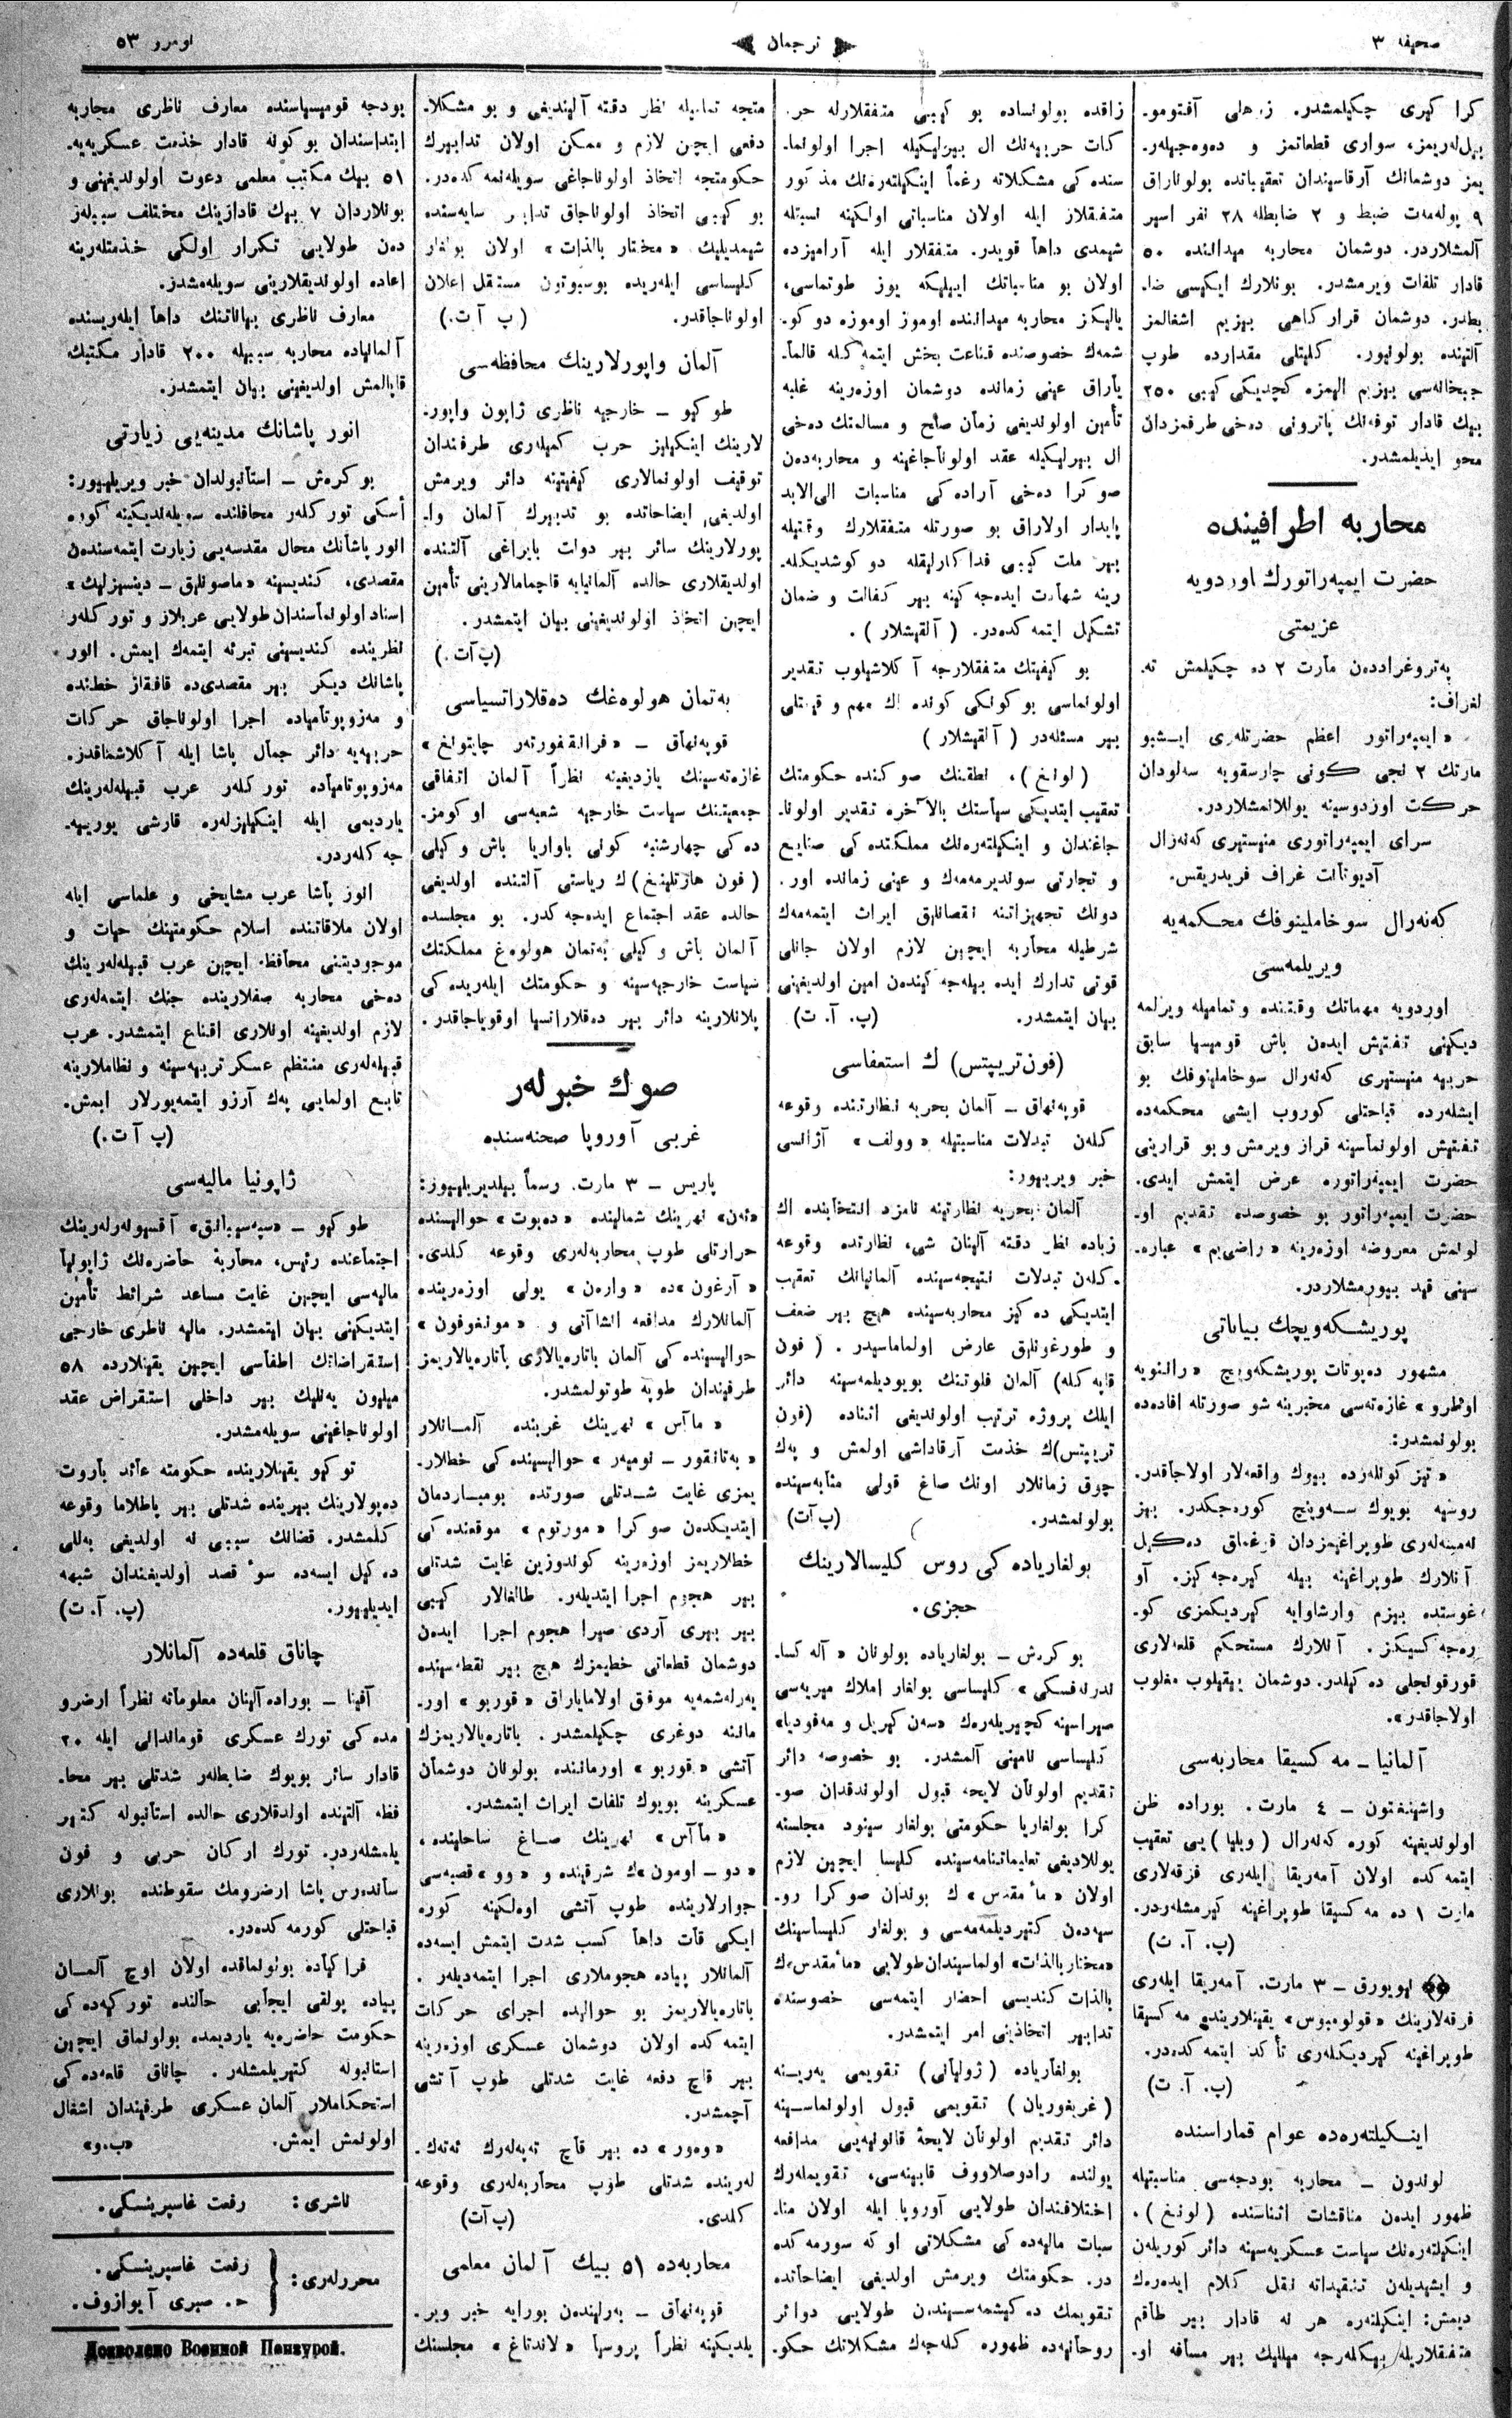 صحیفه ۳
ترجمان
نومرو ۵۳
کرا کیری چکیلمشدر. زرهلی آفتومو-
بیل‌لەریمز، سواری قطعاتمز و دەوەجیلەر-
یمز دوشمانك آرقاسیندان تعقیباتده بولوناراق
۹ پولەمەت ضبط و ۲ ضابطله ۲۸ نفر اسیر
آلمشلاردر. دوشمان محاربه میداننده ۵۰
قادار تلفات ویرمشدر. بونلارك ایکیسی ضا-
بطدر. دوشمان قرارکاهی بیزیم اشغالمز
آلتینده بولونیور. کلیتلی مقدارده طوپ
جبخانه‌سی بیزیم الیمزه کچدیکی کیبی ۲۵۰
بیك قادار توفەنك پاترونی دەخی طرفمزدان
محو ایدیلمشدر.
محاربه اطرافینده
حضرت ایمپەراتورك اوردویه
عزیمتی
پەتروغراددەن مارت ۲ ده چکیلمش تە-
لغراف:
« ایمپەراتور اعظم حضرتلەری ایشبو
مارتك ۲ نجی کونی چارسقویه سەلودان
حرکت اوردوسینه یوللانمشلاردر.
سرای ایمپەراتوری منیستیری کەنەرال
آدیوتانت غراف فریدریقس.
کەنەرال سوخاملینوفك محکمەیه
ویریلمەسی
اوردویه مهماتك وقتنده و تمامیله ویرلمه
دیکنی تفتیش ایدەن باش قومیسیا سابق
حربیه منیستیری کەنەرال سوخاملینوفك بو
ایشلەرده قباحتلی کوروب ایشی محکمەده
تفتیش اولونماسینه قرار ویرمش و بو قرارینی
حضرت ایمپەراتوره عرض ایتمش ایدی.
حضرت ایمپەراتور بو خصوصده تقدیم او-
لونمش معروضه اوزەرینه « راضی‌یم » عباره-
سینی قید بیورمشلاردر.
پوریشکەویچك بیاناتی
مشهور دەپوتات پوریشکەویچ « راننویه
اوطرو » غازەتەسی مخبرینه شو صورتله افادەده
بولونمشدر:
« تیز کونلەرده بیوك واقعەلار اولاجاقدر.
روسیه بویوك سەوینچ کورەجکدر. بیز
نەمیسەلەری طوپراغیمزدان قوغماق دەکیل
آنلارك طوپراغینه بیله کیرەجەکیز. آو
غوستده بیزم وارشاوایه کیردیکمزی کو-
رەجەکسیکز. آنلارك مستحکم قلعەلاری
قورقونجلی دەکیلدر. دوشمان یقیلوب مغلوب
اولاجاقدر».
آلمانیا ـ مەکسیقا محاربەسی
واشینغتون ـ ٤ مارت. بوراده ظن
اولوندیغینه کوره کەنەرال ( ویلیا ) یی تعقیب
ایتمەکده اولان آمەریقا ایلەری فرقەلاری
مارت ۱ ده مەکسیقا طوپراغینه کیرمشلەردر.
(پ. آ. ت)
نیویورق ـ ۳ مارت. آمەریقا ایلەری
فرقەلارینك « قولومبوس » یقینلارینده مەکسیقا
طوپراغینه کیردیکلەری تأکد ایتمەکدەدر.
(پ. آ. ت)
اینکیلتەرەده عوام قماراسنده
لوندون ـ محاربه بودجەسی مناسبتیله
ظهور ایدەن مناقشات اثناسنده ( لونغ )،
اینکیلتەرەنك سیاست عسکریەسینه دائر کوریلەن
و ایشیدیلەن تنقیداته نقل کلام ایدەرەك
دیمش: اینکیلتەره هر نه قادار بیر طاقم
متفقلاریله بیکلەرجه میللیك بیر مسافه او-
زاقده بولونساده بو کیبی متفقلارله حر-
کات حربیەنك ال بیرلیکیله اجرا اولونما-
سندەکی مشکلاته رغماً اینکیلتەرەنك مذکور
متفقلار ایله اولان مناسباتی اولکینه نسبتله
شیمدی داهأ قویدر. متفقلار ایله آرامیزده
اولان بو مناسباتك ایپلیکه یوز طوتماسی،
یالیکز محاربه میداننده اوموز اوموزه دوکو-
شمەك خصوصنده قناعت بخش ایتمەکله قالما-
یاراق عینی زمانده دوشمان اوزەرینه غلبه
تأمین اولوندیغی زمان صلح و مسالمتك دەخی
ال بیرلیکیله عقد اولوناجاغینه و محاربەدەن
صوکرا دەخی آرادەکی مناسبات الی‌الابد
پایدار اولاراق بو صورتله متفقلارك وقتیله
بیر ملت کیبی فداکارلیقله دوکوشدیکلە-
رینه شهادت ایدەجەکینه بیر کفالت و ضمان
تشکیل ایتمەکدەدر. ( آلقیشلار ).
بو کیفیتك متفقلارجه آکلاشیلوب تقدیر
اولونماسی بو کونکی کونده اك مهم و قیمتلی
بیر مسئلەدر ( آلقیشلار )
( لونغ )، نطقنك صوکنده حکومتك
تعقیب ایتدیکی سیاستك بالآخره تقدیر اولونا-
جاغندان و اینکیلتەرەنك مملکتدەکی صنایع
و تجارتی سوندیرمەمەك و عینی زمانده اور-
دونك تجهیزاتنه نقصانلق ایراث ایتمەمەك
شرطیله محاربه ایچین لازم اولان جانلی
قوتی تدارك ایده بیلەجەکیندن امین اولدیغینی
بیان ایتمشدر. (پ. آ. ت)
(فون‌تریپتس) ك استعفاسی
قوپەنهاق ـ آلمان بحریه نظارتنده وقوعه
کلەن تبدلات مناسبتیله « وولف » آژانسی
خبر ویریور:
آلمان بحریه نظارتینه نامزد انتخابنده اك
زیاده نظر دقته آلینان شی، نظارتده وقوعه
کلەن تبدلات نتیجەسینده آلمانیانك تعقیب
ایتدیکی دەکیز محاربەسینده هیچ بیر ضعف
و طورغونلق عارض اولماماسیدر. ( فون
قاپەکله) آلمان فلوتنك بویودیلمەسینه دائر
ایلك پروژه ترتیب اولوندیغی اثناده (فون
تریپتس)ك خذمت آرقاداشی اولمش و پەك
چوق زمانلار اونك صاغ قولی مثابەسینده
بولونمشدر. (پ آت)
بولغاریادەکی روس کلیسالارینك
حجزی.
بوکرەش ـ بولغاریاده بولونان « آلەکسا-
ندرنەفسکی » کلیساسی بولغار املاك میریەسی
صیراسینه کچیریلەرەك «سەن کیریل و مەفودیا»
کلیساسی نامینی آلمشدر. بو خصوصه دائر
تقدیم اولونان لایحه قبول اولوندقدان صو-
کرا بولغاریا حکومتی بولغار سینود مجلسنه
یوللادیغی تعلیماتنامەسینده کلیسا ایچین لازم
اولان « مأمقدس » ك بوندان صوکرا رو-
سیەدەن کتیردیلمەمەسی و بولغار کلیساسینك
«مختار بالذات» اولماسیندان‌طولایی «مأمقدس»ك
بالذات کندیسی احضار ایتمەسی خصوصنده
تدابیر اتخاذینی امر ایتمشدر.
بولغاریاده (ژولیانی) تقویمی یەرینه
(غریغوریان) تقویمی قبول اولونماسینه
دائر تقدیم اولونان لایحهٔ قانونیەیی مدافعه
یولنده رادوصلاووف قابینەسی، تقویملەرك
اختلافندان طولایی آوروپا ایله اولان منا-
سبات مالیەدەکی مشکلاتی اوکه سورمەکده
در. حکومتك ویرمش اولدیغی ایضاحاتده
تقویمك دەکیشمەسیندن طولایی دوائر
روحانیەده ظهوره کلەجەك مشکلاتك حکو-
متجه تمامیله نظر دقته آلیندیغی و بو مشکلا-
دفعی ایچن لازم و ممکن اولان تدابیرك
حکومتجه اتخاذ اولوناجاغی سویلەنمەکدەدر.
بو کیبی اتخاذ اولوناجاق تدابیر سایەسنده
شیمدیلیك « مختار بالذات » اولان بولغار
کلیساسی ایلەریده بوسبوتون مستقل اعلان
اولوناجاقدر. (پ آ ت.)
آلمان واپورلارینك محافظەسی
طوکیو ـ خارجیه ناظری ژاپون واپور-
لارینك اینکیلیز حرب کمیلەری طرفندان
توقیف اولونمالاری کیفیتینه دائر ویرمش
اولدیغی ایضاحاتده بو تدبیرك آلمان وا-
پورلارینك سائر بیر دولت بایراغی آلتنده
اولدیقلاری حالده آلمانیایه قاچمامالارینی تأمین
ایچین اتخاذ اولوندیغینی بیان ایتمشدر.
(پ‌آت.)
بەتمان هولوەغك دەقلاراتسیاسی
قوپەنهاق ـ «فرانقفورتەر چایتونغ»
غازەتەسینك یازدیغینه نظراً آلمان اتفاقی
جمعیتنك سیاست خارجیه شعبەسی اوکومز-
دەکی چهارشنبه کونی باواریا باش وکیلی
(فون هارتلینغ)ك ریاستی آلتنده اولدیغی
حالده عقد اجتماع ایدەجەکدر. بو مجلسده
آلمان باش وکیلی بەتمان هولوەغ مملکتك
سیاست خارجیەسینه و حکومتك ایلەریدەکی
پلانلارینه دائر بیر دەقلاراتسیا اوقویاجاقدر.
صوك خبرلەر
غربی آوروپا صحنەسنده
پاریس ـ ۳ مارت. رسماً بیلدیریلییور:
«ئەن» نهرینك شمالینده « دەبوت » حوالیسنده
حرارتلی طوپ محاربەلەری وقوعه کلدی.
« آرغون »ده « وارەن » یولی اوزەرینده
آلمانلارك مدافعه انشاآتی و « مونفوقون »
حوالیسیندەکی آلمان باتارەیالاری باتارەیالاریمز
طرفیندان طوپه طوتولمشدر.
« مآاس » نهرینك غربنده آلمانلار
« بەتانقور ـ نومیەر » حوالیسیندەکی خطلار-
یمزی غایت شدتلی صورتده بومباردمان
ایتدیکدەن صوکرا « مورتوم » موقعندەکی
خطلاریمز اوزەرینه کوندوزین غایت شدتلی
بیر هجوم اجرا ایتدیلەر. طالغالار کیبی
بیر بیری آردی صیرا هجوم اجرا ایدەن
دوشمان قطعاتی خطیمزك هیچ بیر نقطەسینده
یەرلەشمەیه موفق اولامایاراق « قوربو » اور-
ماننه دوغری چکیلمشدر. باتارەیالاریمزك
آتشی « قوربو » اورماننده بولونان دوشمان
عسکرینه بویوك تلفات ایراث ایتمشدر.
« مآاس » نهرینك صاغ ساحلینده،
« دو ـ اومون »ك شرقینده و « وو » قصبەسی
جوارلارینده طوپ آتشی اولکینه کوره
ایکی قات داهأ کسب شدت ایتمش ایسەده
آلمانلار پیاده هجوملاری اجرا ایتمەدیلەر.
باتارەیالاریمز بو حوالیده اجرای حرکات
ایتمەکده اولان دوشمان عسکری اوزەرینه
بیر قاچ دفعه غایت شدتلی طوپ آتشی
آچمشدر.
« وەور » ده بیر قاچ تەپەلەرك ئەتەك-
لەرینده شدتلی طوپ محاربەلەری وقوعه
کلدی. (پ‌آت)
محاربەده ۵۱ بیك آلمان معلمی
قوپەنهاق ـ بەرلیندەن بورایه خبر ویر-
یلدیکینه نظراً پروسیا « لاندتاغ » مجلسنك
بودجه قومیسیاسنده معارف ناظری محاربه
ابتداسندان بو کونه قادار خذمت عسکریەیه-
۵۱ بیك مکتب معلمی دعوت اولوندیغینی و
بونلاردان ۷ بیك قادارینك مختلف سببلەر
دەن طولایی تکرار اولکی خذمتلەرینه
اعاده اولوندیقلارینی سویلەمشدر.
معارف ناظری بیاناتنك داهأ ایلەریسنده
آلمانیاده محاربه سببیله ۲۰۰ قادار مکتبك
قاپالمش اولدیغینی بیان ایتمشدر.
انور پاشانك مدینەیی زیارتی
بوکرەش ـ استانبولدان خبر ویریلییور:
أسکی تورکلەر محافلنده سویلەندیکینه کوره
انور پاشانك محال مقدسەیی زیارت ایتمەسندەن
مقصدی، کندیسینه «ماصونلق ـ دینسزلیك»
اسناد اولونماسندان طولایی عربلار و تورکلەر
نظرینده کندیسینی تبرئه ایتمەك ایمش. انور
پاشانك دیکر بیر مقصدی‌ده قافقاز خطنده
و مەزوپوتامیاده اجرا اولوناجاق حرکات
حربیەیه دائر جمال پاشا ایله آکلاشماقدر.
مەزوپوتامیاده تورکلەر عرب قبیلەلەرینك
یاردیمی ایله اینکیلیزلەره قارشی یوریيه-
جەکلەردر.
انور پاشا عرب مشایخی و علماسی ایله
اولان ملاقاتنده اسلام حکومتینك حیات و
موجودیتنی محافظه ایچین عرب قبیلەلەرینك
دەخی محاربه صفلارینده جنك ایتمەلەری
لازم اولدیغینه اونلاری اقناع ایتمشدر. عرب
قبیلەلەری منتظم عسکر تربیەسینه و نظاملارینه
تابع اولمایی پەك آرزو ایتمەیورلار ایمش.
(پ آ ت.)
ژاپونیا مالیەسی
طوکیو ـ «سپەسیبانق» آقسیونەرلەرینك
اجتماعنده رئیس، محاربهٔ حاضرەنك ژاپونیا
مالیەسی ایچین غایت مساعد شرائط تأمین
ایتدیکینی بیان ایتمشدر. مالیه ناظری خارجی
استقراضاتك اطفأسی ایچین یقینلارده ۵۸
میلیون یەنلیك بیر داخلی استقراض عقد
اولوناجاغینی سویلەمشدر.
توکیو یقینلارینده حکومته عائد باروت
دەپولارینك بیرینده شدتلی بیر پاطلاما وقوعه
کلمشدر. قضانك سببی نه اولدیغی بەللی
دەکیل ایسەده سوٴ قصد اولدیغندان شبهه
ایدیلییور. (پ. آ. ت)
چاناق قلعەده آلمانلار
آفینا ـ بوراده آلینان معلوماته نظراً ارضرو
مدەکی تورك عسکری قوماندانی ایله ۲۰
قادار سائر بویوك ضابطلەر شدتلی بیر محا-
فظه آلتینده اولدقلاری حالده استانبوله کتیر
یلمشلەردر. تورك ارکان حربی و فون
ساندەرس پاشا ارضرومك سقوطنده بونلاری
قباحتلی کورمەکدەدر.
فراکیاده بولونماقده اولان اوچ آلمان
پیاده پولقی ایجابی حالنده تورکیەدەکی
حکومت حاضرەیه یاردیمده بولونماق ایچین
استانبوله کتیریلمشلەر. چاناق قلعەدەکی
استحکاملار آلمان عسکری طرفیندان اشغال
اولونمش ایمش. «ب.و»
ناشری: رفعت غاسپرینسکی.
محررلەری: { رفعت غاسپرینسکی.
ح. صبری آیوازوف.
Дозволено Военной Цензурой.